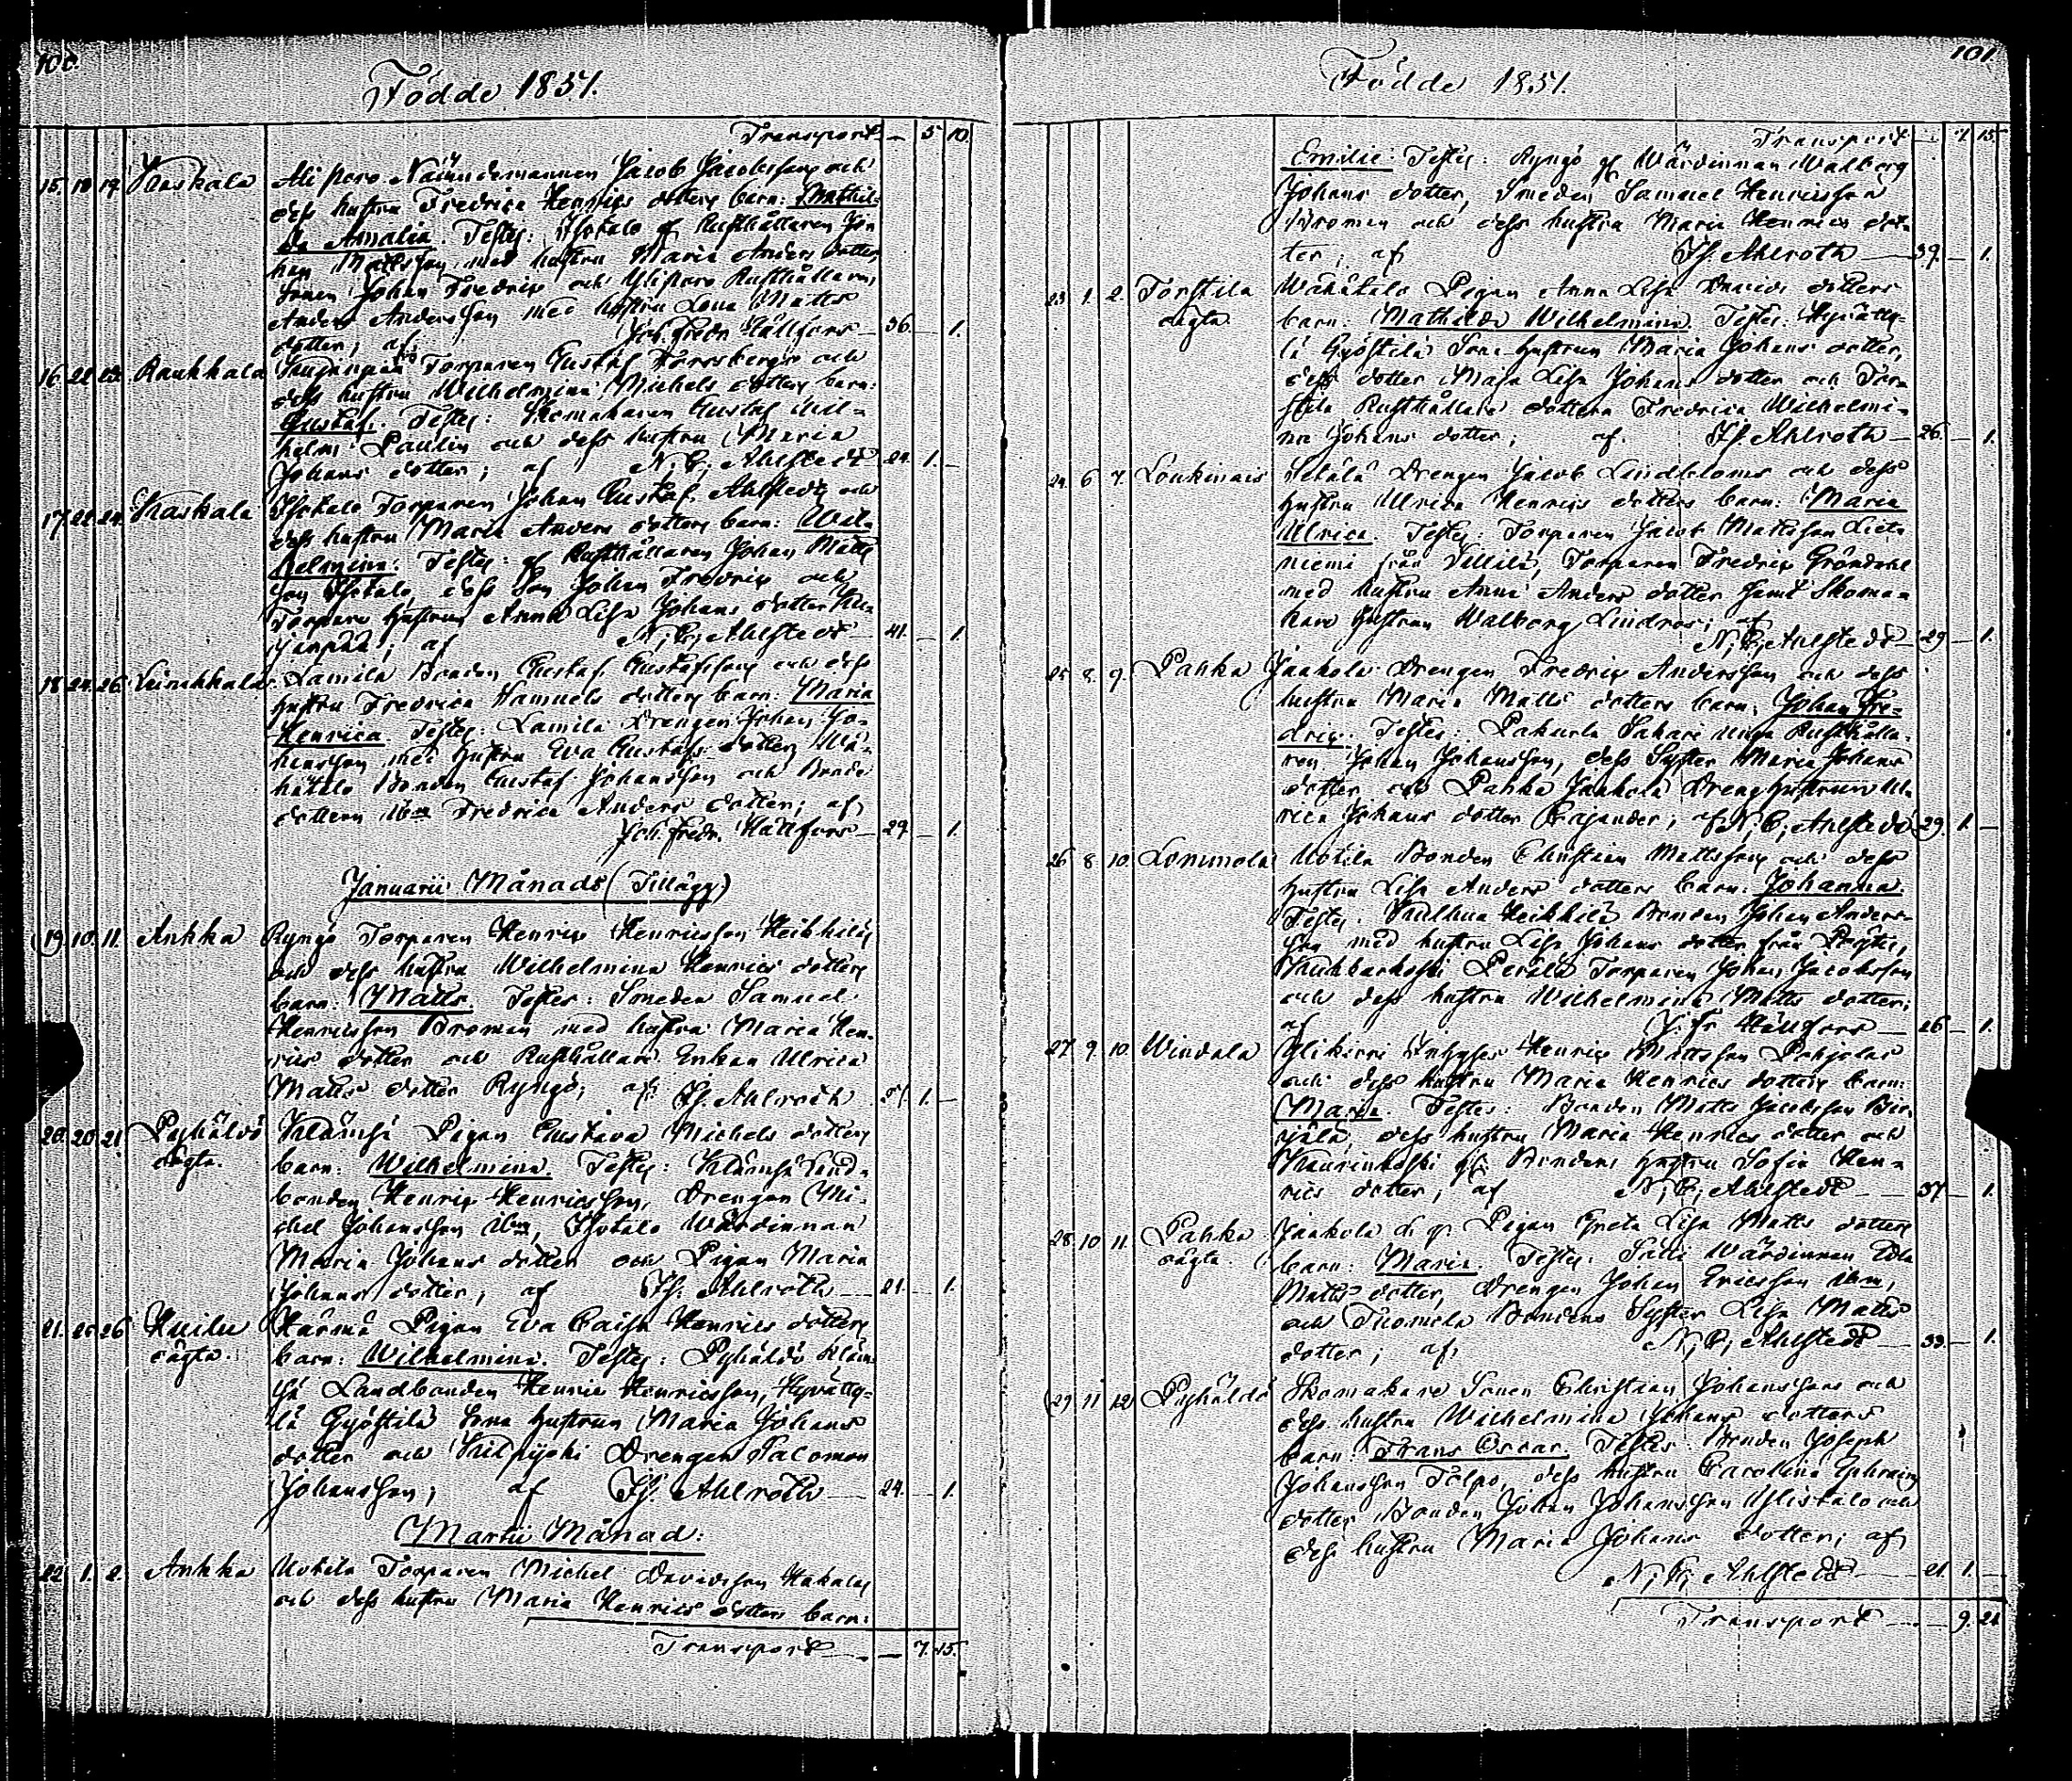 100.
Födde 1851.
Transport — 5 10.
15. 18 19. Kaskala Ali Paro Nämndemannen Jacob Jacobsson och
dess hustru Fredrica Henrics dotters barn: Mathil-
da Amalia. Testes: Isotalo gl Rusthållaren Jo-
han Mattsson med hustru Maria Anders dotter,
Sonen Johan Fredric och Yliparo Rusthållaren
Anders Andersson med hustru Lena Matts
dotter; af Joh. Fredr. Hällfors — 36. — 1.
16. 22 Raukkala Torparen Gustaf Forsbergs och
dess hustru Wilhelmina Michels dotters barn:
Gustaf. Testes: Skomakaren Gustaf Wil-
helm Paulin och dess hustru Maria
Johans dotter; af N. C. Ahlstedt 24. 1. —
17. 22. 24. Kaskala Isotalo Torparen Johan Gustaf Ahlstedts och
dess hustru Maria Anders dotters barn: Wil-
helmina. Testes: gl Rusthållaren Johan Matts
son Isotalo, dess Son Johan Fredric och
Torpare hustrun Anna Lisa Johans dotter Ku-
janpää; af N. C. Ahlstedt — 41. — 1.
18. 24. 26. Leinakkala Lamila Bonden Gustaf Gustafsson och dess
hustru Fredrica Samuels dotters barn: Maria
Henrica. Testes: Lamila Drengen Johan Jo-
hansson med hustru Eva Gustafs dotter, Wä-
hätalo Bonden Gustaf Johansson och Bonde
dottern ibm Fredrica Anders dotter; af
Joh. Fredr. Hällfors — 29. — 1.
Januarii Månads (Tillägg.)
19. 10. 11. Ankka Ryngö Torparen Henric Henricsson Heikkiläs
och dess hustru Wilhelmina Henrics dotters
barn: Matts. Testes: Smeden Samuel
Henricsson Broman med hustru Maria Hen-
rics dotter och Rusthållare Enkan Ulrica
Matts dotter Ryngö; af Is. Ahlroth 1. —
20. 20. 21. Pyhältö Klämsä Pigan Gustava Michels dotters
oägta. barn: Wilhelmina. Testes: Klämsä Land-
bonden Henric Henricsson, Drengen Mi-
chel Johansson ibm, Isotalo Wärdinnan
Maria Johans dotter och Pigan Maria
Johans dotter; af Is. Ahlroth — 21. — 1.
21. 26 Kuilu Härmä Pigan Eva Caisa Henrics dotters
oägta. barn: Wilhelmina. Testes: Pyhältö Kläm-
sä Landbonden Henric Henricsson, Hyvätty-
lä Gyöstilä Sona hustrun Maria Johans
dotter och Kilpijoki Drengen Salomon
Johansson; af Is. Ahlroth — 24. — 1.
Martii Månad:
22. 1. 2. Ankka Uotila Torparen Michel Davidsson Hakalas
och dess hustru Maria Henrics dotters barn:
Transport — — 7. 15.
101.
Födde 1851.
Transport — 7. 15.
Emilie. Testes: Ryngö gl Wärdinnan Walborg
Johans dotter, Smeden Samuel Henricsson
Broman och dess hustru Maria Henrics dot-
ter; af Is. Ahlroth — 39. — 1.
23. 1. 2. Torstila Wähätalo Pigan Anna Lisa Davids dotters
oägta. barn: Mathilda Wilhelmina. Testes: Hyvätty-
lä Gyöstilä Sona hustrun Maria Johans dotter,
dess dotter Maja Lisa Johans dotter och Tors
stila Rusthållare dottern Fredrica Wilhelmi-
na Johans dotter; af Is. Ahlroth — 26. — 1.
24. 6 7. Loukinais Setälä Drengen Jacob Lindbloms och dess
hustru Ulrica Henrics dotters barn: Maria
Ulrica. Testes: Torparen Jacob Mattsson Lieta
niemi från Villilä, Torparen Fredric Gröndahl
med hustru Anna Anders dotter samt Skoma-
kare hustrun Walborg Lindros; af
N. C. Ahlstedt — 29 — 1.
25 8. 9. Pahka Jaakola Drengen Fredric Andersson och dess
hustru Maria Matts dotters barn: Johan Fre-
dric. Testes: Pakurla Sakari unga Rusthålla-
ren Johan Johansson, dess Syster Maria Johans
dotter och Pahka Jaakola Dreng hustrun Ul-
rica Johans dotter Cajander; af N. C. Ahlstedt 29. 1. —
26 8 10. Lonnmola Uotila Bonden Christian Mattsson och dess
hustru Lisa Anders dotters barn: Johanna.
Testes: Kulhua Heikkilä Bonden Johan Anders-
son med hustru Lisa Johans dotter från Pöytis,
Perälä Torparen Johan Jacobsson
och dess hustru Wilhelmina Matts dotter;
af J. Fr. Hällfors — 26 — 1.
27 9. 10. Windala Ylikirri Inhyses Henric Mattsson Pohjolas
och dess hustru Maria Henrics dotters barn:
Maria. Testes: Bonden Matts Jacobsson
dess hustru Maria Henrics dotter och
Kaurinkoski gl. Bondens hustru Sofia Hen-
rics dotter; af N. C. Ahlstedt — 37 — 1.
28. 10 11. Pahka Jaakola d. y. Pigan Greta Lisa Matts dotters
oägta. barn: Maria. Testes: Sätti Wärdinnan Edla
Matts dotter, Drengen Johan Ericsson ibm,
och Tuomola Bondens Syster Lisa Matts
dotter; af N. C. Ahlstedt — 33. — 1.
29 11 12 Pyhältö Skomakare Sonen Christian Johanssons och
dess hustru Wilhelmina Johans dotters
barn: Frans Oscar. Testes: Bonden Joseph
Johansson Tolpo, dess hustru Carolina Ephraims
dotter, Bonden Johan Johansson Ylistalo och
dess hustru Maria Johans dotter; af
N. C. Ahlstedt — 21 1. —
Transport — — 9. 21